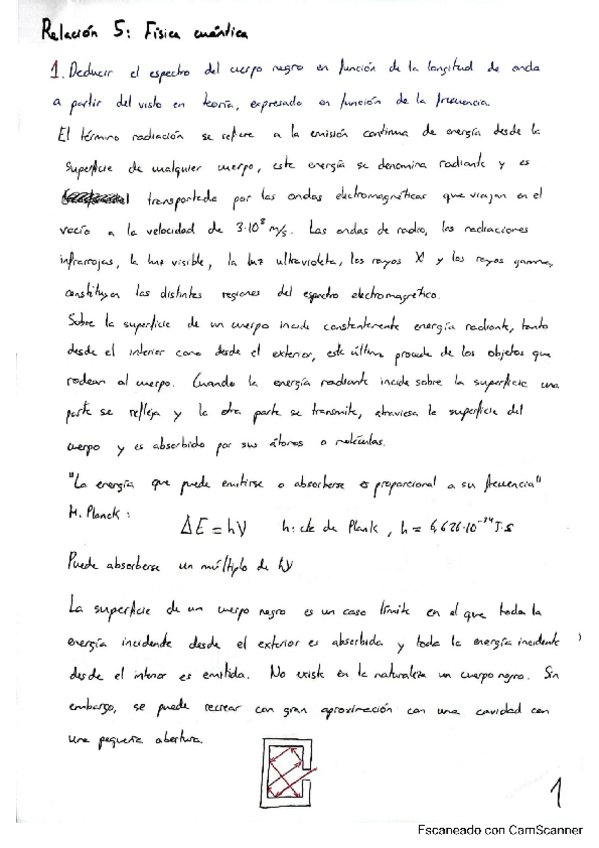 Relación 5: Física cuántica
1. Deducir el espectro del cuerpo negro en función de la longitud de onda
a partir del visto en teoría, expresado en función de la frecuencia.
El término radiación se refiere a la emisión continua de energía desde la
superficie de cualquier cuerpo, esta energía se denomina radiante y es
transportada por las ondas electromagnéticas que viajan en el
vacío a la velocidad de 3·10⁸ m/s. Las ondas de radio, las radiaciones
infrarrojas, la luz visible, la luz ultravioleta, los rayos X y los rayos gamma,
constituyen las distintas regiones del espectro electromagnético.
Sobre la superficie de un cuerpo incide constantemente energía radiante, tanto
desde el interior como desde el exterior, esta última procede de los objetos que
rodean al cuerpo. Cuando la energía radiante incide sobre la superficie una
parte se refleja y la otra parte se transmite, atraviesa la superficie del
cuerpo y es absorbida por sus átomos o moléculas.
"La energía que puede emitirse o absorberse es proporcional a su frecuencia"
M. Planck:
ΔE = hν   h: cte de Plank, h = 6,626·10⁻³⁴ J·s
Puede absorberse un múltiplo de hν
La superficie de un cuerpo negro es un caso límite en el que toda la
energía incidente desde el exterior es absorbida y toda la energía incidente
desde el interior es emitida. No existe en la naturaleza un cuerpo negro. Sin
embargo, se puede recrear con gran aproximación con una cavidad con
una pequeña abertura.
1
Escaneado con CamScanner